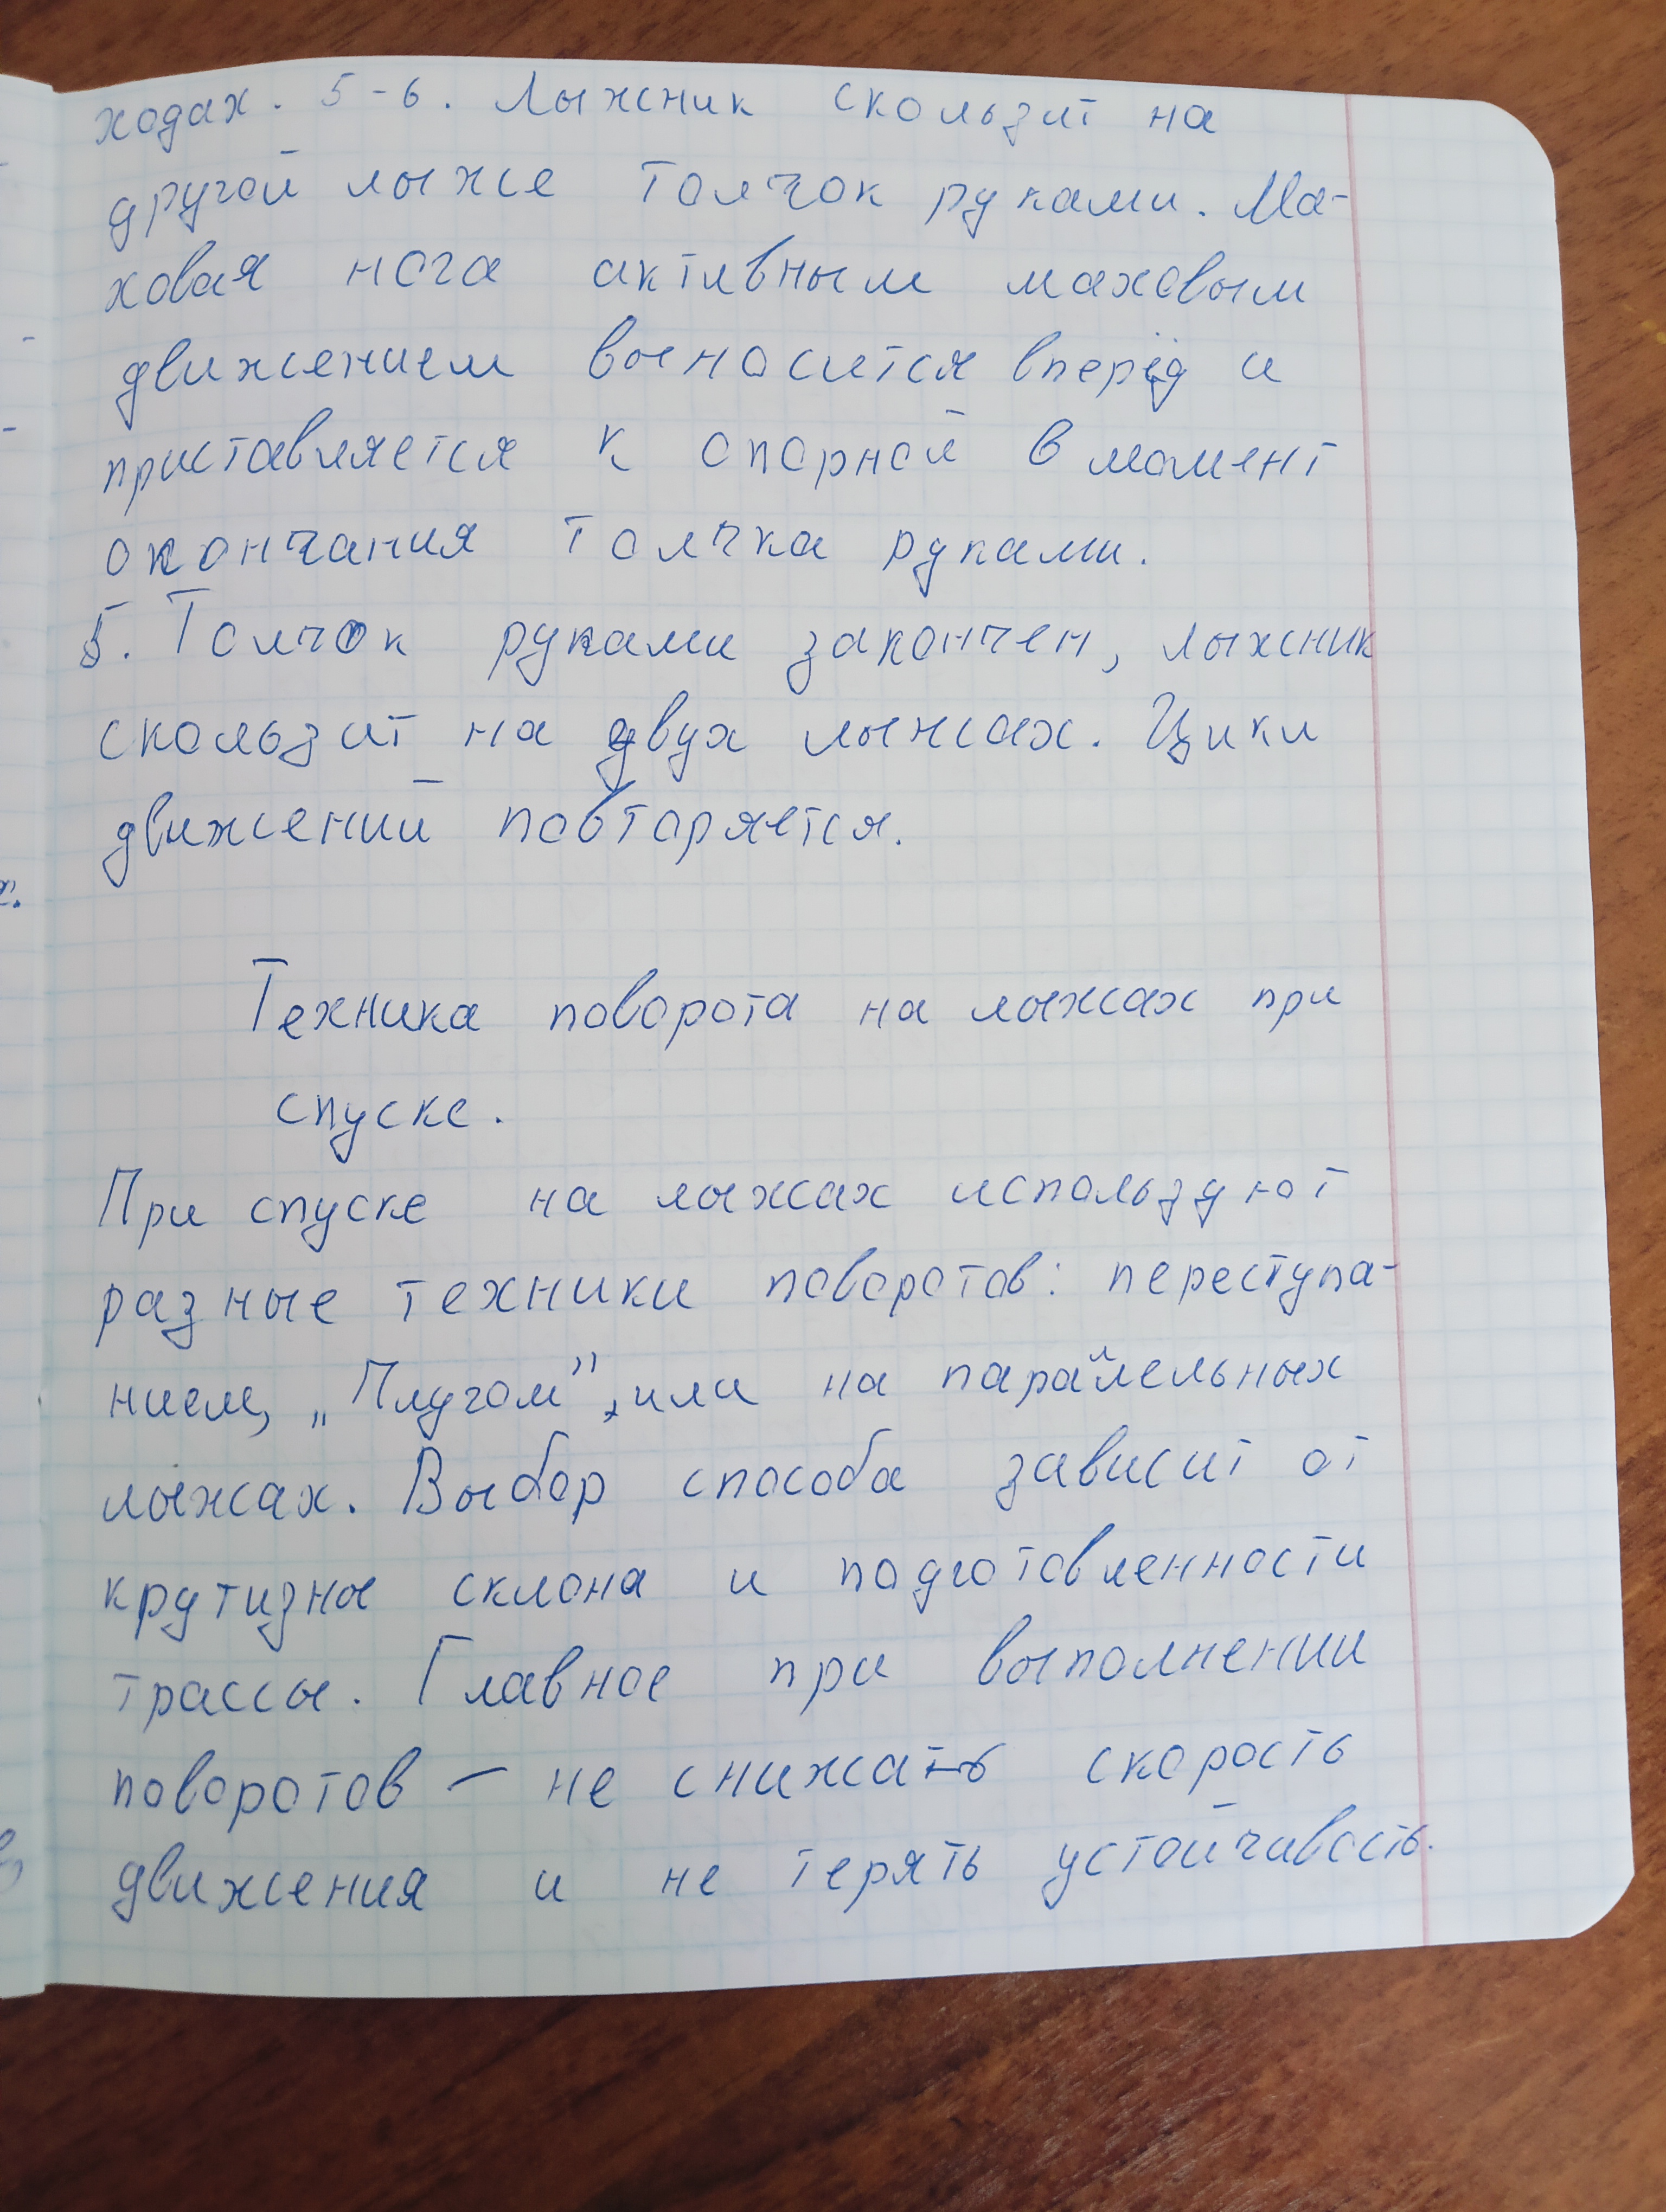 ходах. 5-6. Лыжник скользит на
другой лыже толчок руками. Ма-
ховая нога активным маховым
движением выносится вперёд и
приставляется к опорной в момент
окончания толчка руками.
5. Толчок руками закончен, лыжник
скользит на двух лыжах. Цикл
движений повторяется.
Техника поворота на лыжах при
спуске.
При спуске на лыжах используют
разные техники поворотов: переступа-
нием, „Плугом”, или на параллельных
лыжах. Выбор способа зависит от
крутизны склона и подготовленности
трассы. Главное при выполнении
поворотов – не снижать скорость
движения и не терять устойчивость.